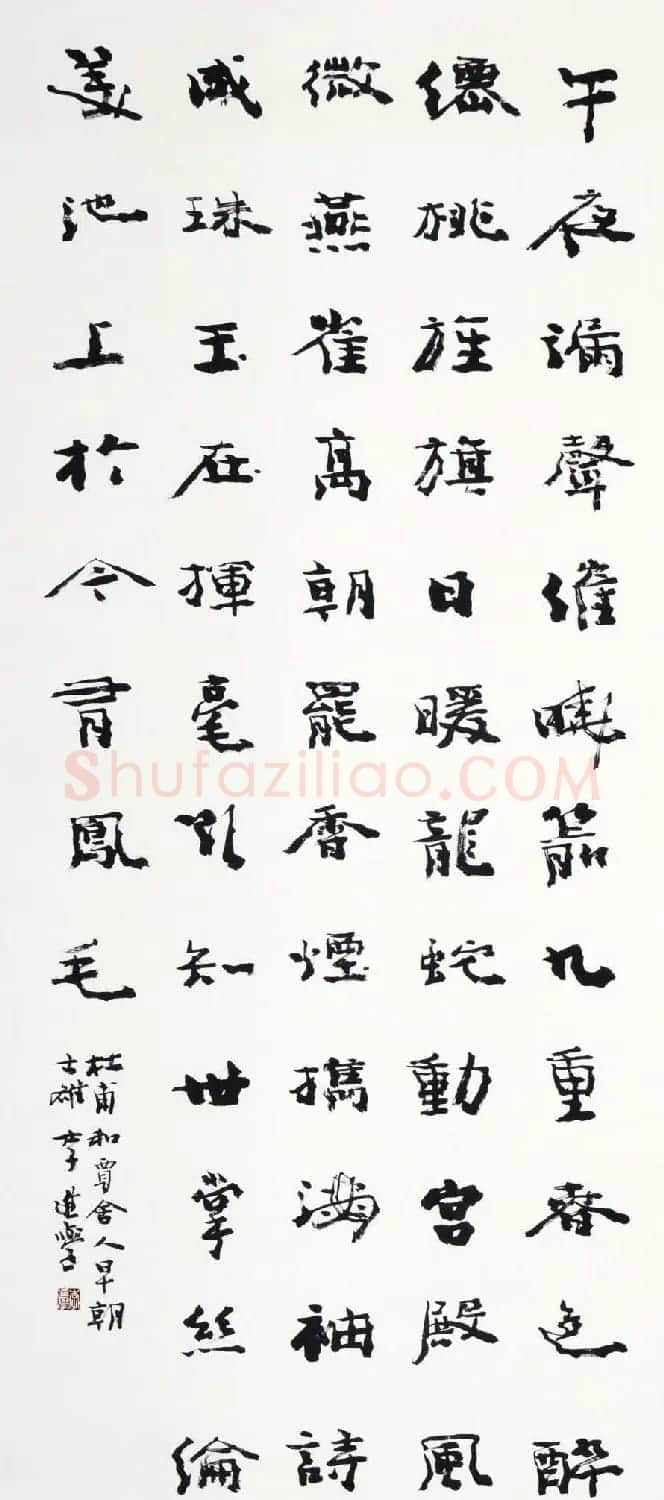 午夜漏聲催曉箭九重春色醉
僊桃旌旗日暖龍蛇動宮殿風
微燕雀高朝罷香煙攜滿袖詩
成珠玉在揮毫欲知世掌絲綸
美池上於今有鳳毛
杜甫和賈舍人早朝
士雄李進學
Shufaziliao.COM